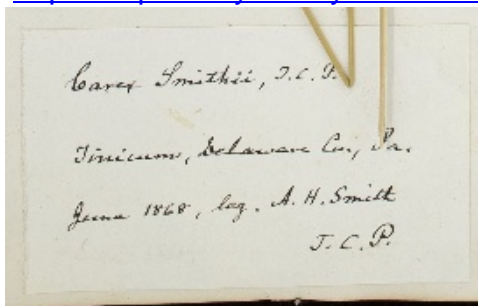 Carex Smithii, T. C. P.
Tinicum, Delaware Co., Pa.
June 1868, leg. A. H. Smith
T. C. P.